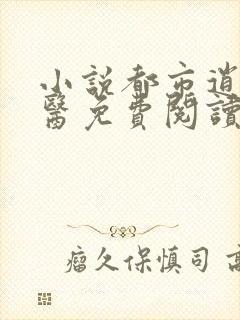 小説都市逍
醫免費閱讀
瘤久保慎司 高